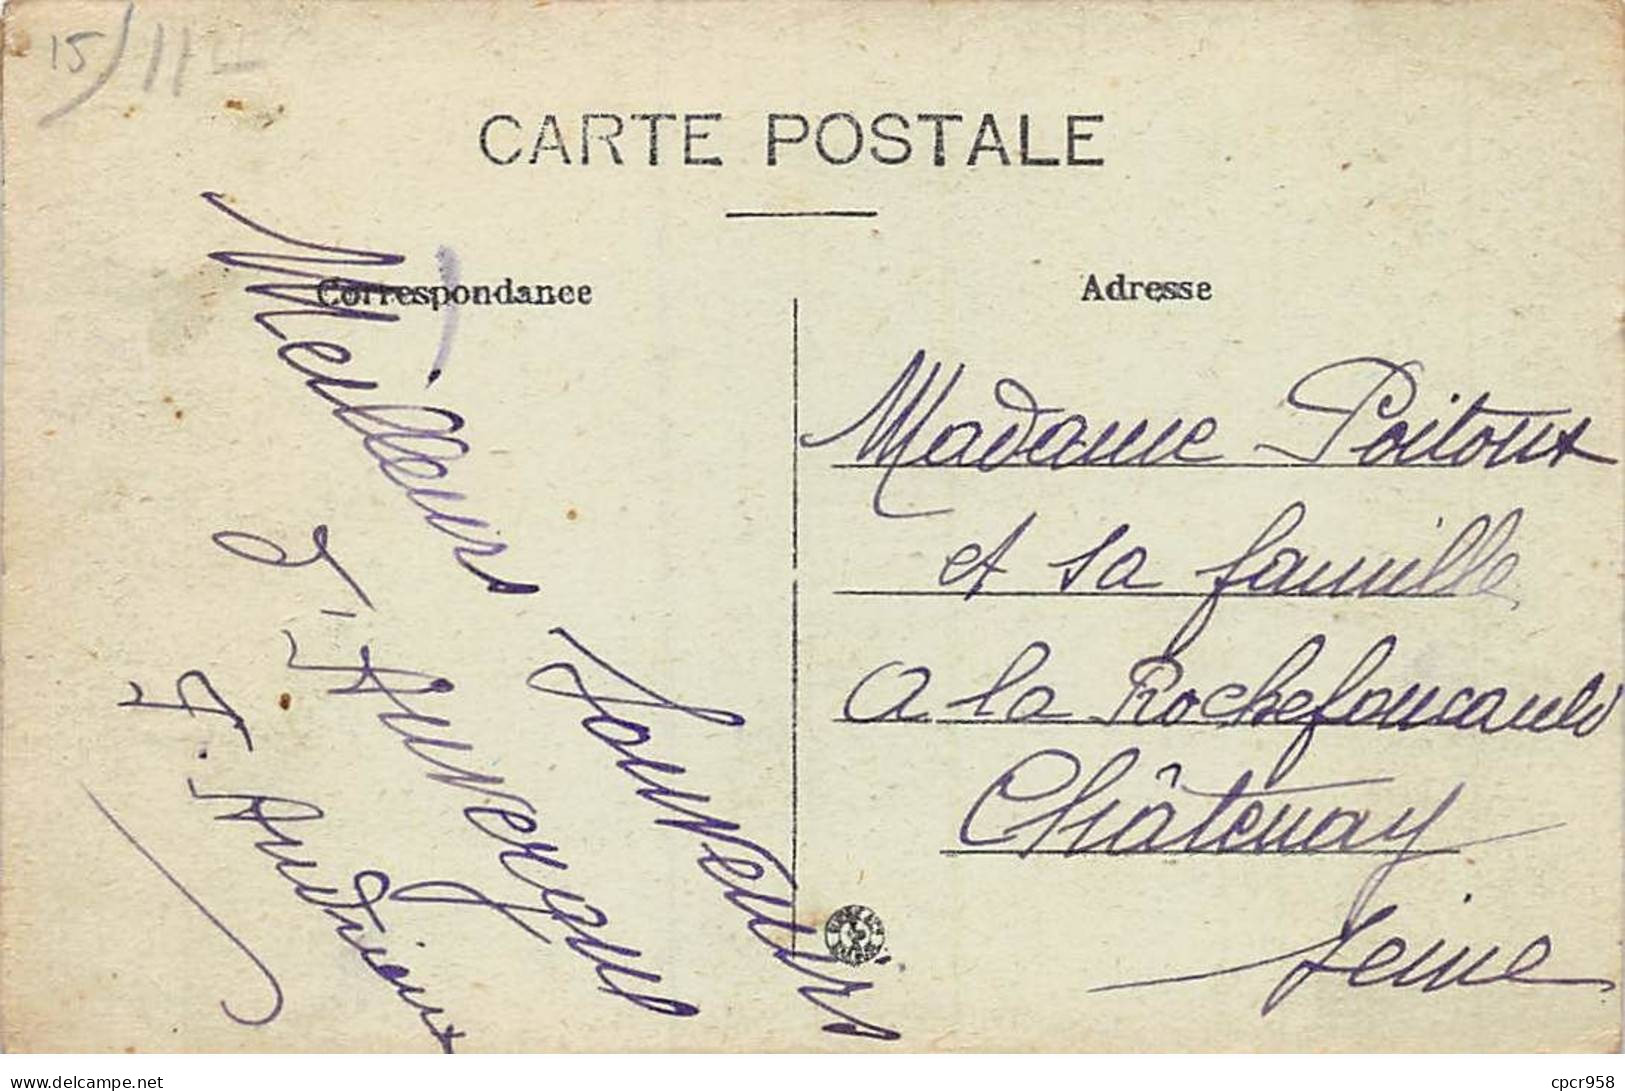 15/11
CARTE POSTALE
Correspondance
Adresse
Meilleurs Souvenirs
d'Auvergne
F. Audrieux
Madame Poitoux
et sa famille
A la Rochefoucauld
Châtenay
Seine
delcampe.net
cpcr958